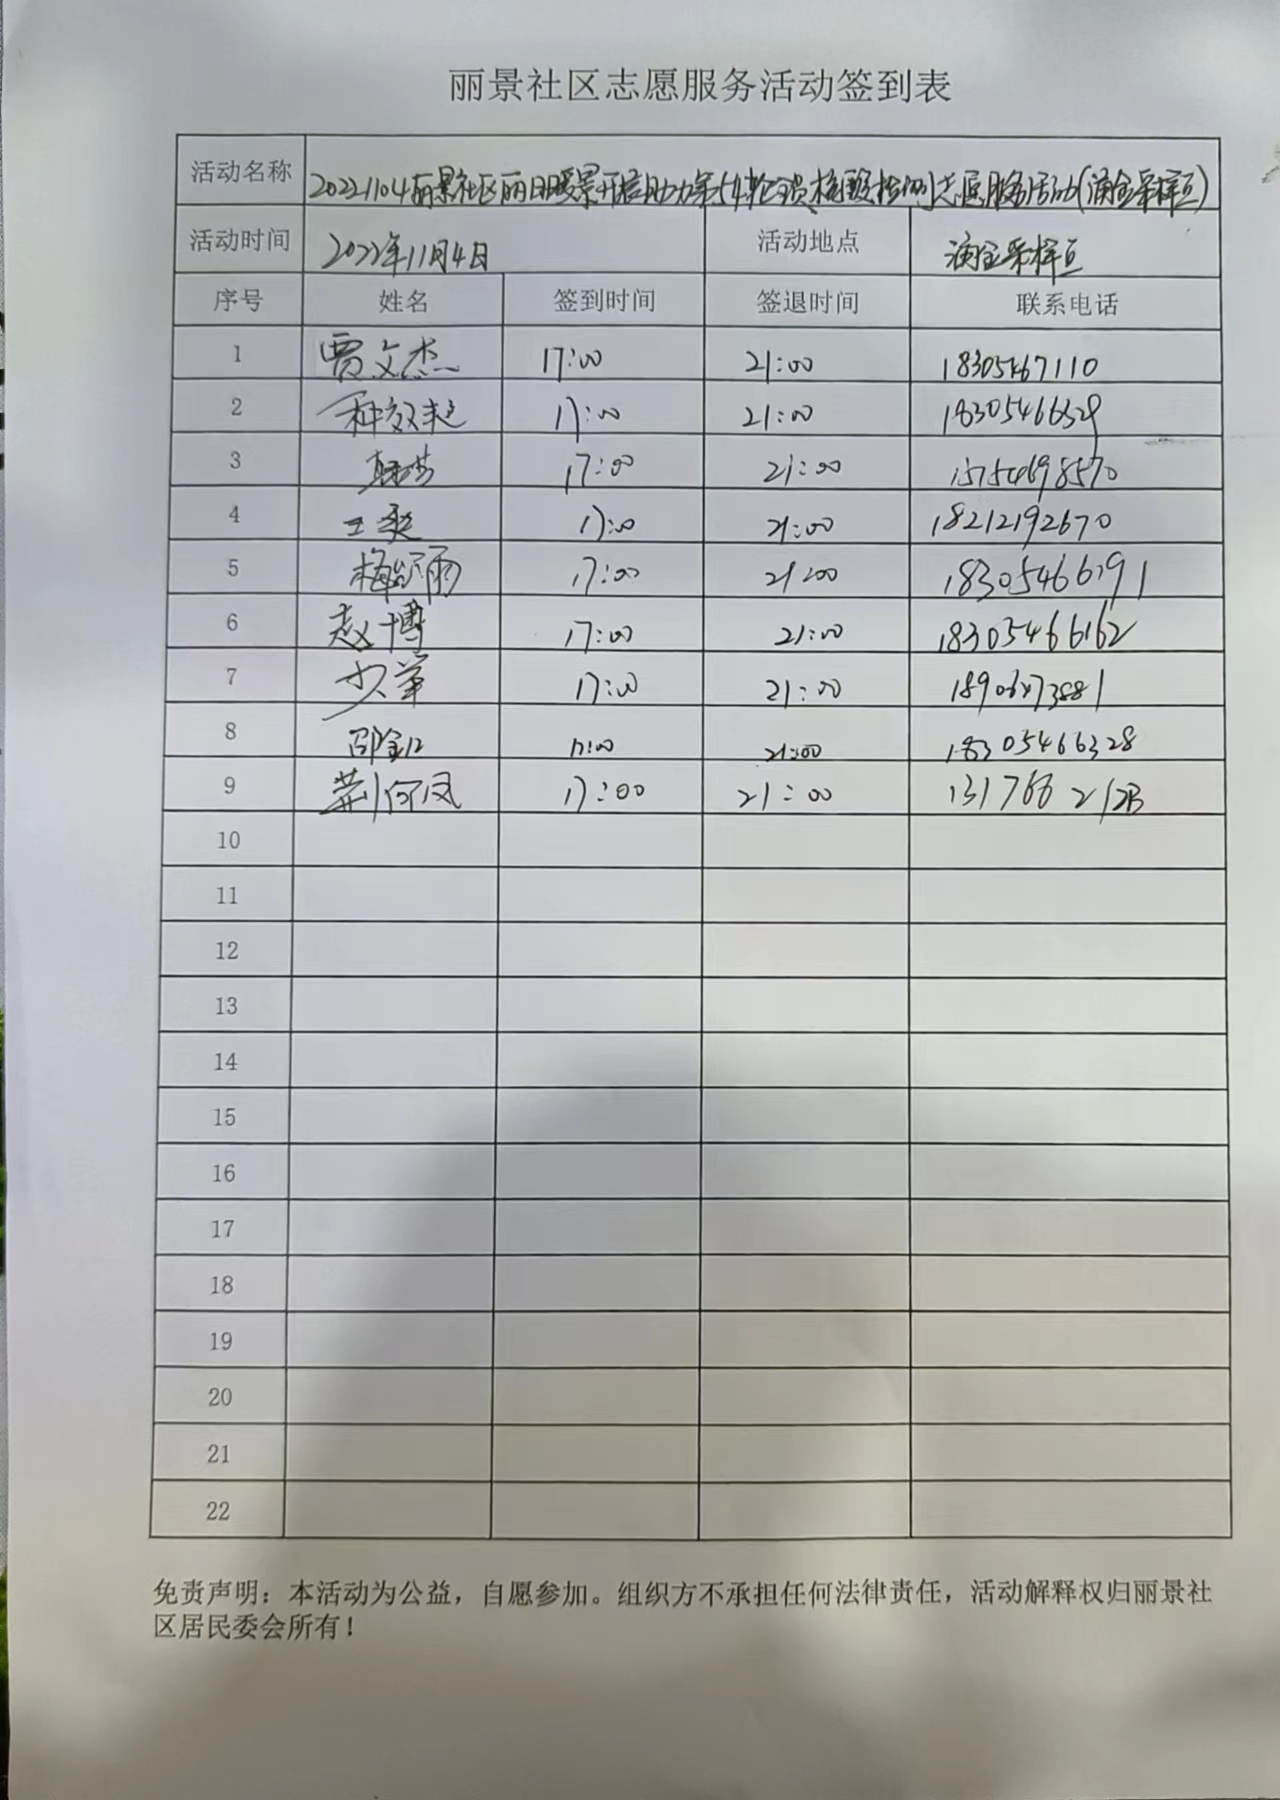 丽景社区志愿服务活动签到表
活动名称 20221104丽景社区丽日暖景开展助力第54轮全员核酸检测志愿服务活动(满金采样点)
活动时间 2022年11月4日 活动地点 满金采样点
序号 姓名 签到时间 签退时间 联系电话
1 贾文杰 17:00 21:00 18305467110
2 种效超 17:00 21:00
3 17:00 21:00 15754698570
4 王爽 17:00 21:00 18212192670
5 梅 雨 17:00 21:00 18305466191
6 赵博 17:00 21:00 18305466162
7 17:00 21:00
8 17:00 21:00 18305466328
9 荆何凤 17:00 21:00
10
11
12
13
14
15
16
17
18
19
20
21
22
免责声明：本活动为公益，自愿参加。组织方不承担任何法律责任，活动解释权归丽景社
区居民委会所有！